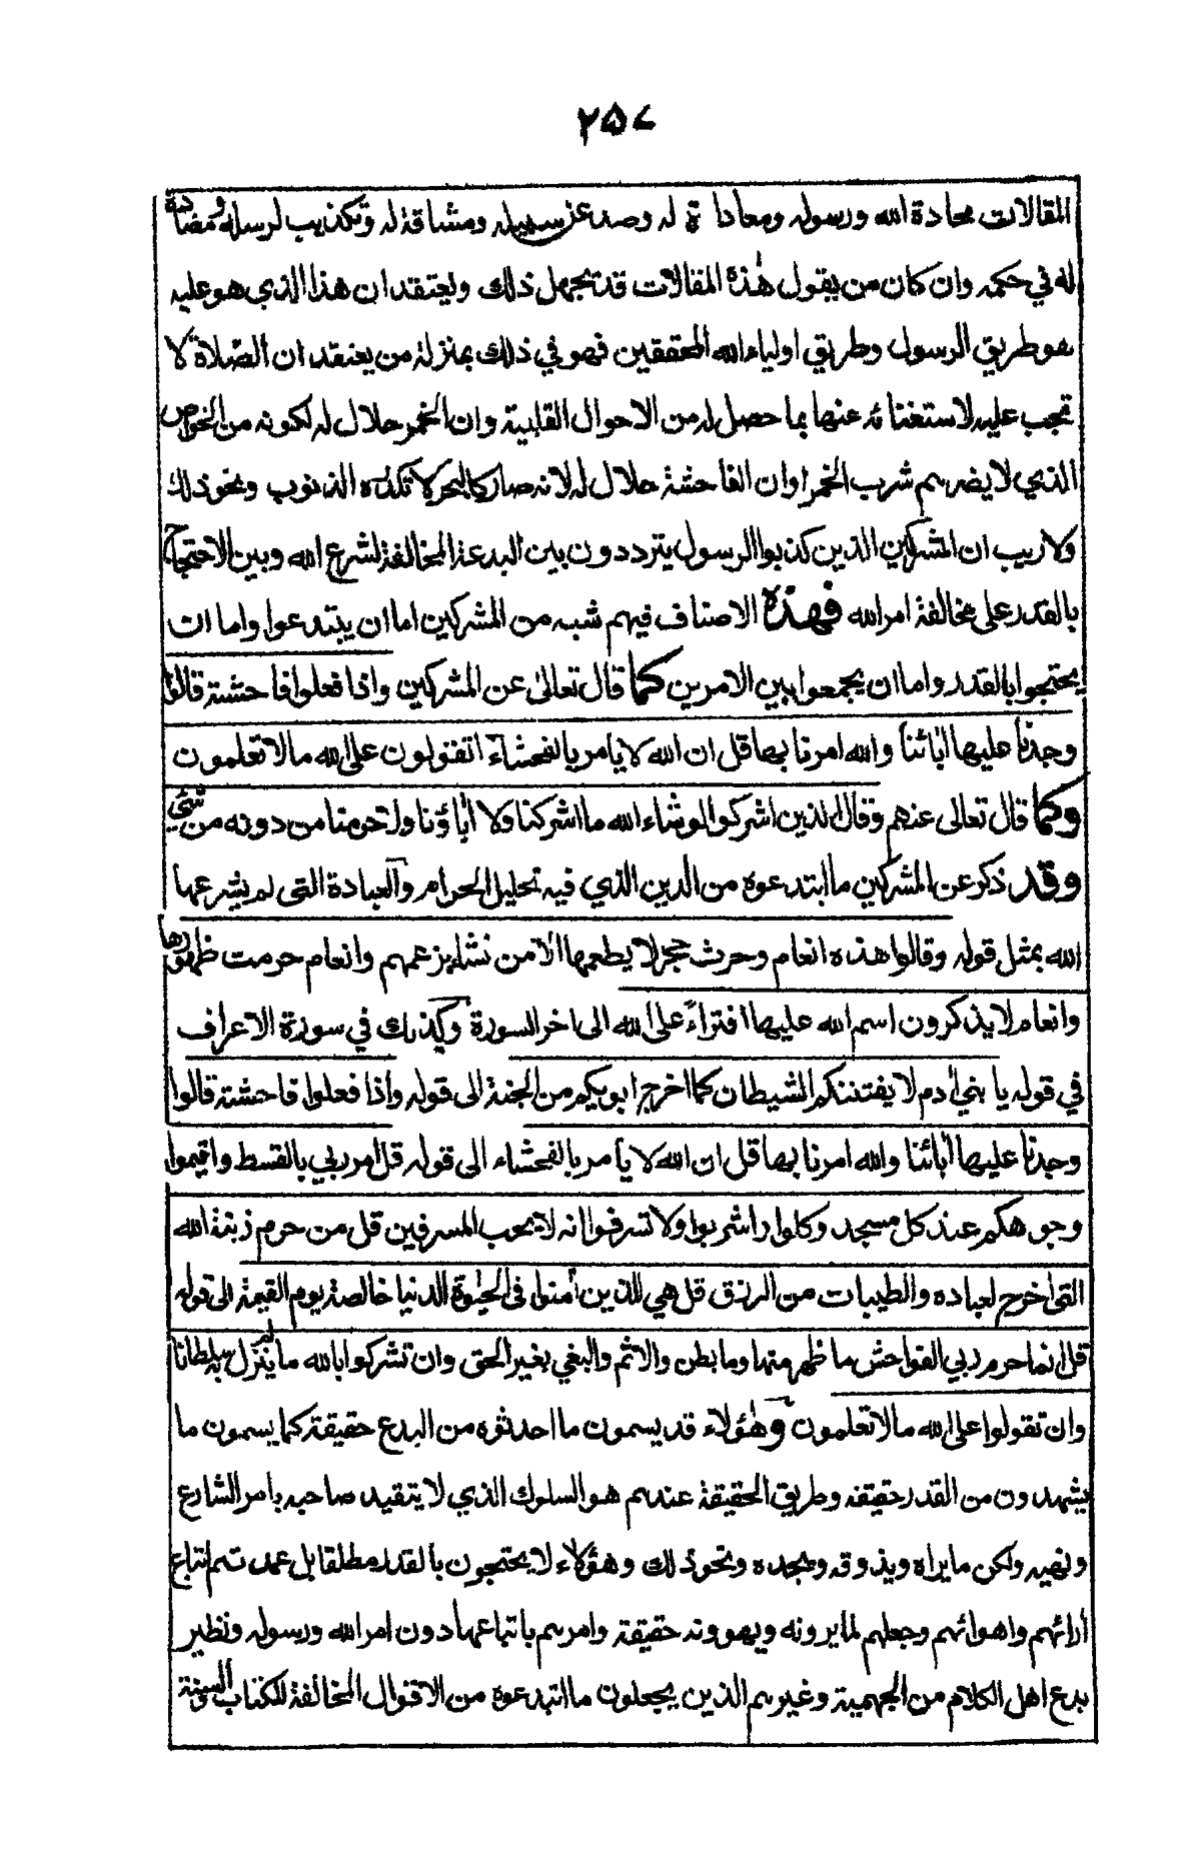 ٢٥٧
المقالات محادة الله ورسوله ومعاداة له وصد عن سبيله ومشاقة له وتكذيب لرسله ومضادة
له في حكمه وان كان من يقول هٰذه المقالات قد يجهل ذلك ويعتقد ان هذا الذي هو عليه
هو طريق الرسول وطريق اولياء الله المحققين فهو في ذلك بمنزلة من يعتقد ان الصلاة لا
تجب عليه لاستغنائه عنها بما حصل له من الاحوال القلبية وان الخمر حلال له لكونه من الخواص
الذي لا يضرهم شرب الخمر او ان الفاحشة حلال له لانه صار كالبحر لا تكدره الذنوب ونحو ذلك
ولا ريب ان المشركين الذين كذبوا الرسول يترددون بين البدعة المخالفة لشرع الله وبين الاحتجاج
بالقدر على مخالفة امر الله فهذه الاصناف فيهم شبه من المشركين اما ان يبتدعوا واما ان
يحتجوا بالقدر واما ان يجمعوا بين الامرين كما قال تعالىٰ عن المشركين واذا فعلوا فاحشة قالوا
وجدنا عليها اٰبائنا والله امرنا بها قل ان الله لا يأمر بالفحشاء اتقولون على الله ما لا تعلمون
وكما قال تعالى عنهم وقال الذين اشركوا لو شاء الله ما اشركنا ولا اٰباؤنا ولا حرمنا من دونه من شيء
وقد ذكر عن المشركين ما ابتدعوه من الدين الذي فيه تحليل الحرام والعبادة التي لم يشرعها
الله بمثل قوله وقالوا هذه انعام وحرث حجر لا يطعمها الا من نشاء بزعمهم وانعام حرمت ظهورها
وانعام لا يذكرون اسم الله عليها افتراءً على الله الى اخر السورة وكذلك في سورة الاعراف
في قوله يا بني اٰدم لا يفتننكم الشيطان كما اخرج ابويكم من الجنة الى قوله واذا فعلوا فاحشة قالوا
وجدنا عليها اٰبائنا والله امرنا بها قل ان الله لا يأمر بالفحشاء الى قوله قل امر ربي بالقسط واقيموا
وجوهكم عند كل مسجد وكلوا واشربوا ولا تسرفوا انه لا يحب المسرفين قل من حرم زينة الله
التي اخرج لعباده والطيبات من الرزق قل هي للذين اٰمنوا في الحيٰوة الدنيا خالصة يوم القيمة الى قوله
قل انما حرم ربي الفواحش ما ظهر منها وما بطن والاثم والبغي بغير الحق وان تشركوا بالله ما لم ينزل به سلطانا
وان تقولوا على الله ما لا تعلمون وهٰؤلاء قد يسمون ما احدثوه من البدع حقيقة كما يسمون ما
يشهدون من القدر حقيقة وطريق الحقيقة عندهم هو السلوك الذي لا يتقيد صاحبه بامر الشارع
ونهيه ولكن ما يراه ويذوقه ويجده ونحو ذلك وهؤلاء لا يحتجون بالقدر مطلقا بل عمدتهم اتباع
اٰرائهم واهوائهم وجعلهم لما يرونه ويهوونه حقيقة وامرهم باتباعها دون امر الله ورسوله ونظير
بدع اهل الكلام من الجهمية وغيرهم الذين يجعلون ما ابتدعوه من الاقوال المخالفة للكتاب والسنة